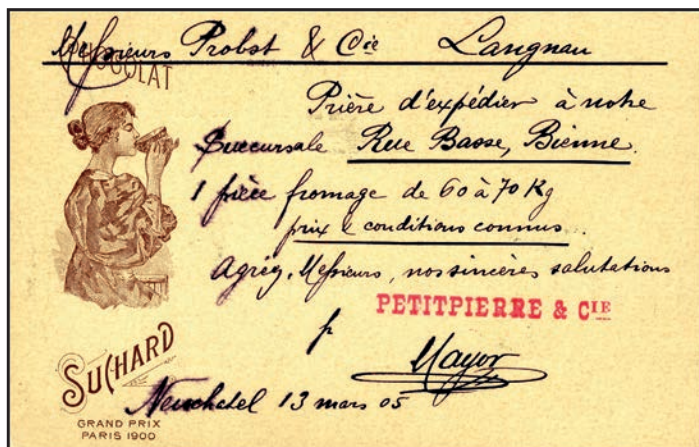 Messieurs Probst & Cie Langnau
CHOCOLAT
Prière d'expédier à notre
Succursale Rue Basse, Bienne.
1 pièce fromage de 60 à 70 Kg
prix & conditions connus.
Agréez, Messieurs, nos sincères salutations
PETITPIERRE & CIE
p Mayor
SUCHARD
Neuchatel 13 mars 05
GRAND PRIX
PARIS 1900